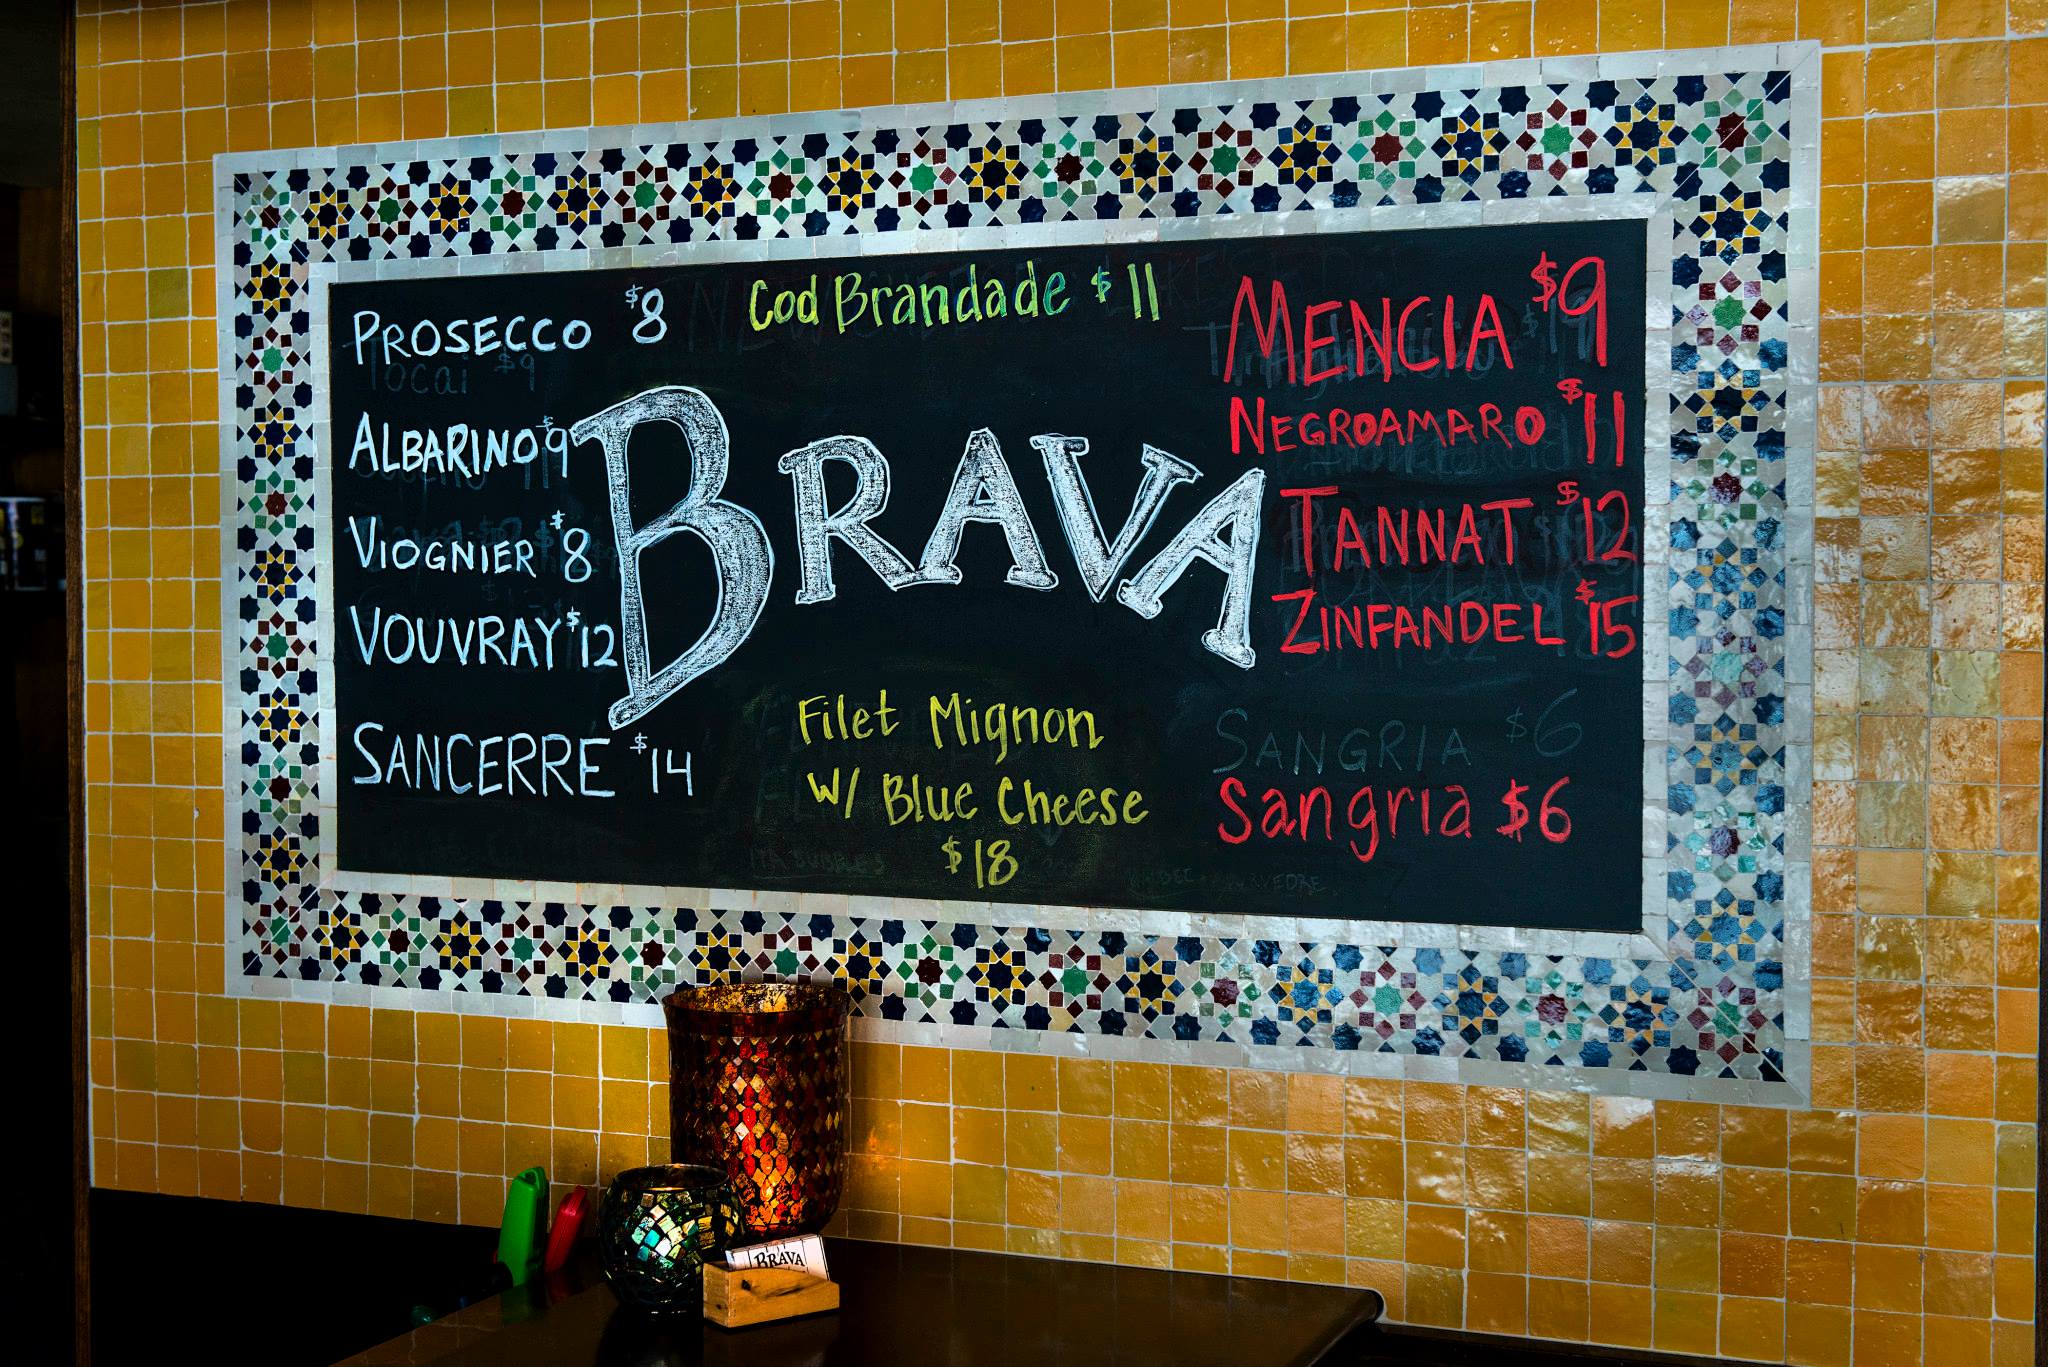 PROSECCO $8
Tocai $9
ALBARINO $9
VIOGNIER $8
VOUVRAY $12
SANCERRE $14
Cod Brandade $11
BRAVA
Filet Mignon
W/ Blue Cheese
$18
MENCIA $9
NEGROAMARO $11
TANNAT $12
ZINFANDEL $15
SANGRIA $6
Sangria $6
BRAVA